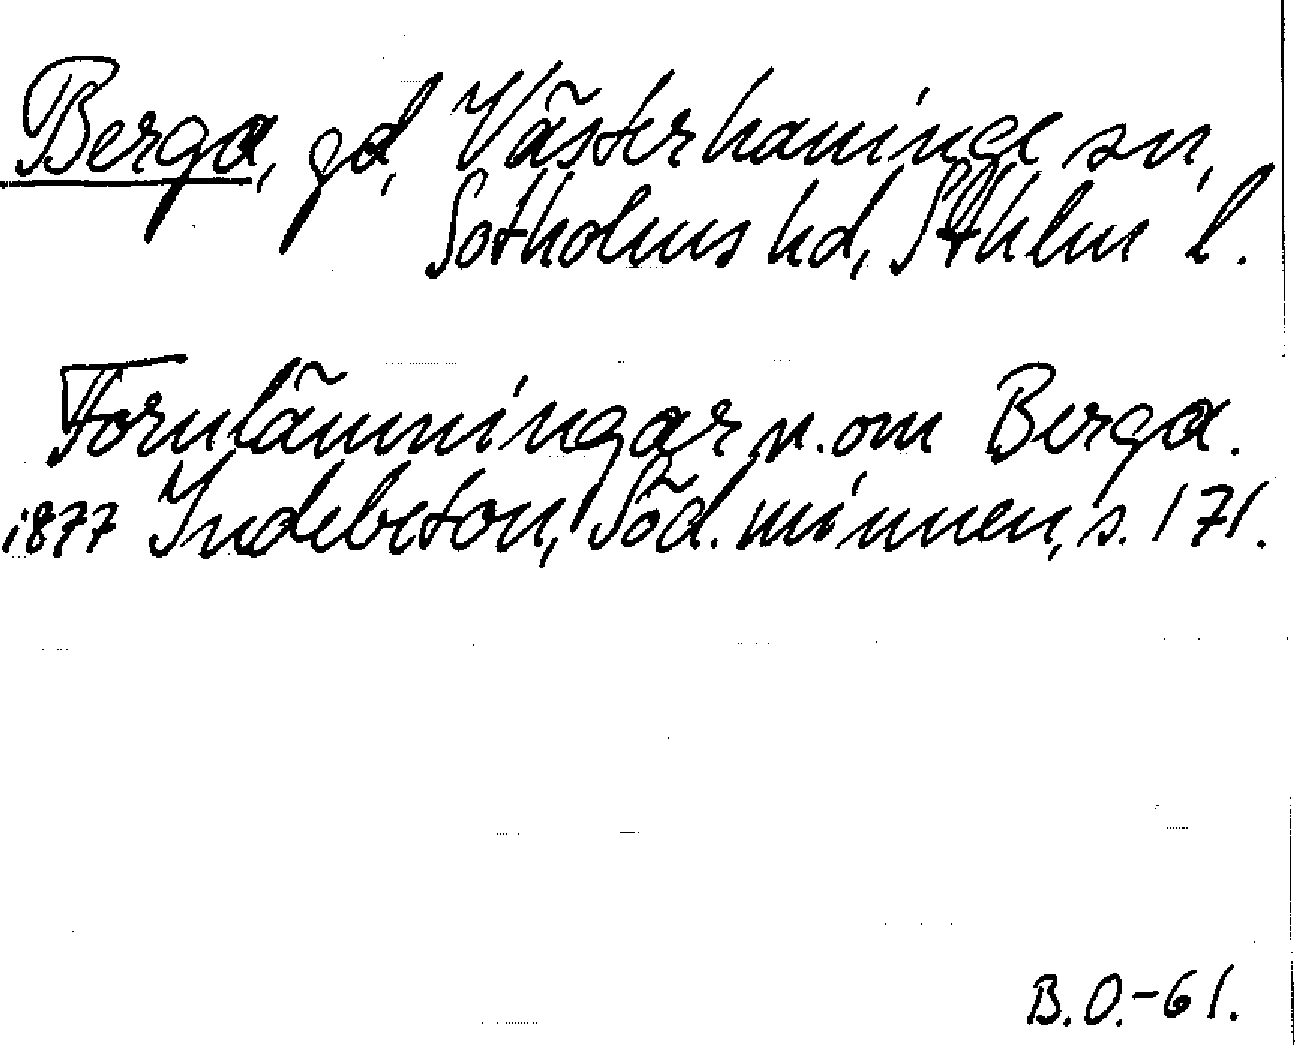 Berga, gd, Västerhaninge sn,
Sotholms hd, Sthlm l.
Fornlämningar n. om Berga.
1877 Indebetou, Söd. minnen, s. 171.
B.O.-61.